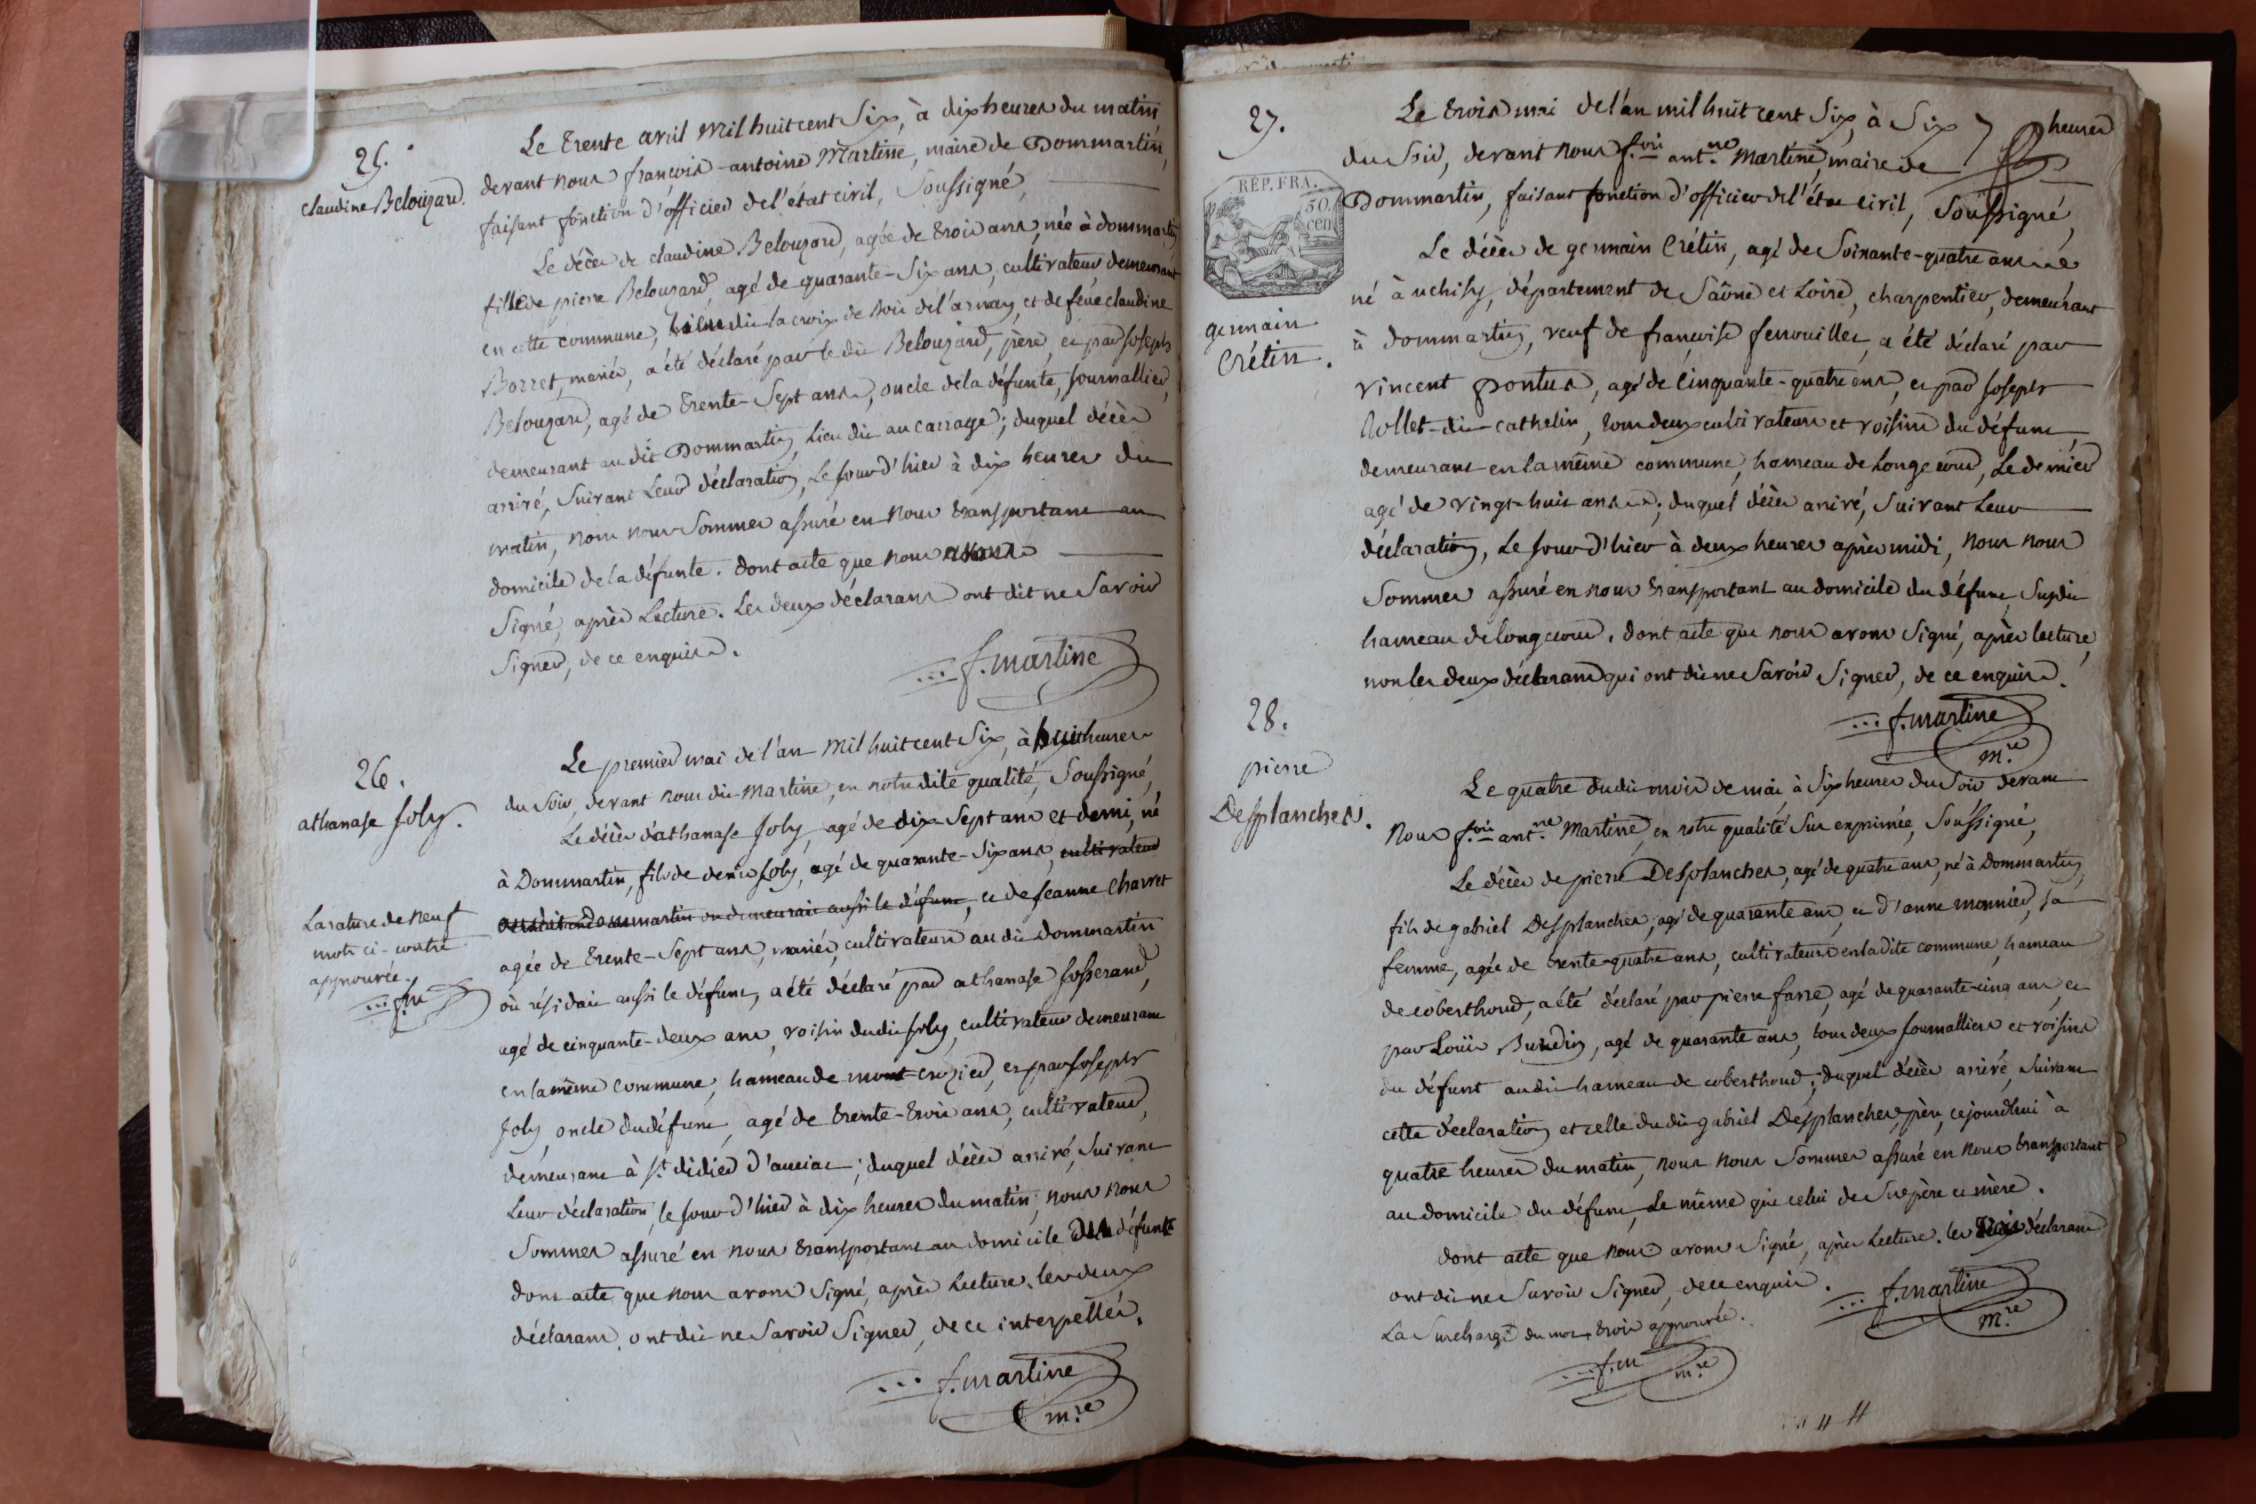 25.
claudine Belouzard.
Le trente avril mil huit cent six, à dix heures du matin
devant nous françois-antoine Martine, maire de Dommartin,
faisant fonction d'officier de l'état civil, soussigné,
Le décès de claudine Belouzard, agée de trois ans, née à dommartin
fille de pierre Belouzard, agé de quarante-six ans, cultivateur demeurant
en cette commune, lieu dit la croix de bois de l'arnay, et de feüe claudine
Borret, mariés, a été déclaré par le dit Belouzard, père, et par joseph
Belouzard, agé de trente-sept ans, oncle de la défunte, journallier,
demeurant au dit Dommartin, lieu dit au carrage; duquel décès
arrivé, suivant leur déclaration, le jour d'hier à dix heures du
matin, nous nous sommes assuré en nous transportant au
domicile de la défunte. dont acte que nous avons
signé, après lecture. Les deux déclarans ont dit ne savoir
signer, de ce enquis.
f. martine
26.
athanase joly.
Le premier mai de l'an mil huit cent six, à huit heures
du soir, devant nous dit Martine, en notre dite qualité, soussigné,
Le décès d'athanase joly, agé de dix sept ans et demi, né
à Dommartin, fils de denis joly, agé de quarante-six ans, cultivateur
au dit Dommartin où demeurait aussi le défunt, et de jeanne charret
agée de trente-sept ans, mariés, cultivateurs au dit dommartin
où résidait aussi le défunt, a été déclaré par athanase josserand,
agé de cinquante-deux ans, voisin du dit joly, cultivateur demeurant
en la même commune, hameau de mont-crozier, et par joseph
joly, oncle du défunt, agé de trente-trois ans, cultivateur,
demeurant à st. didier d'auciat; duquel décès arrivé, suivant
leur déclaration, le jour d'hier à dix heures du matin, nous nous
sommes assuré en nous transportant au domicile du défunt
dont acte que nous avons signé, après lecture. les deux
déclarans ont dit ne savoir signer, de ce interpellés.
La rature de neuf
mots ci-contre
approuvée.
f.m
f. martine
m.re
27.
RÉP. FRA.
50
cen
germain
Crétin.
Le trois mai de l'an mil huit cent six, à six heures
du soir, devant nous f.ois ant.ne Martine, maire de
Dommartin, faisant fonction d'officier de l'état civil, soussigné,
Le décès de germain Crétin, agé de soixante-quatre ans
né à uchisy, département de Saône et Loire, charpentier, demeurant
à dommartin, veuf de françoise fenouillet, a été déclaré par
vincent pontus, agé de cinquante-quatre ans, et par joseph
Rollet-dit-cathelin, tous deux cultivateurs et voisins du défunt,
demeurans en la même commune, hameau de Longecour, Le dernier
agé de vingt-huit ans; duquel décès arrivé, suivant leur
déclaration, Le jour d'hier à deux heures après midi, nous nous
sommes assuré en nous transportant au domicile du défunt susdit
hameau de longecour. dont acte que nous avons signé, après lecture,
non les deux déclarans qui ont dit ne savoir signer, de ce enquis.
f. martine
m.re
28.
pierre
Desplanches.
Le quatre du dit mois de mai à six heures du soir devant
nous f.ois ant.ne Martine, en notre qualité sus exprimée, soussigné,
Le décès de pierre Desplanches, agé de quatre ans, né à Dommartin,
fils de gabriel Desplanches, agé de quarante ans, et d'anne monnier, sa
femme, agée de trente-quatre ans, cultivateurs en la dite commune, hameau
de coberthoud, a été déclaré par pierre farre, agé de quarante cinq ans, et
par Loüis Burdin, agé de quarante ans, tous deux journalliers et voisins
du défunt au dit hameau de coberthoud; duquel décès arrivé, suivant
cette déclaration et celle du dit gabriel Desplanches, père, cejourdhui à
quatre heures du matin, nous nous sommes assuré en nous transportant
au domicile du défunt, Le même que celui de ses père et mère.
dont acte que nous avons signé, après lecture. les trois déclarans
ont dit ne savoir signer, de ce enquis.
La surcharge du mot trois approuvée.
f. martine
m.re
f.m
m.re